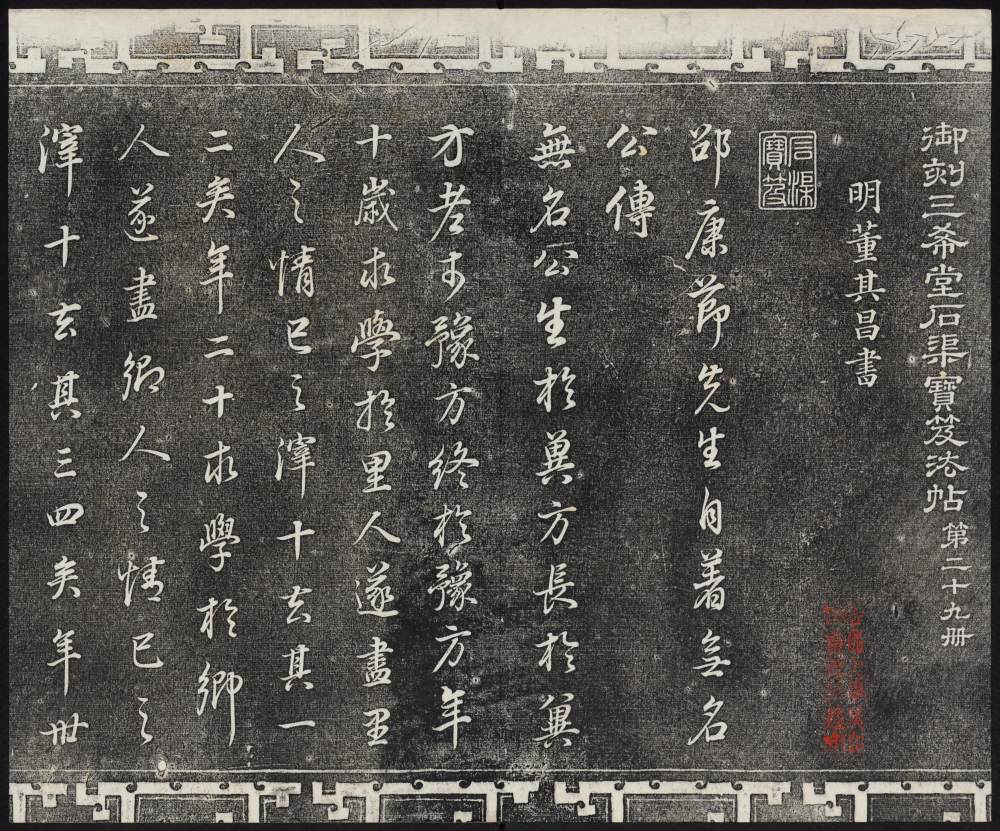 御刻三希堂石渠寶笈法帖第二十九冊
明董其昌書
石渠寶笈
邵康節先生自著無名
公傳
無名公生於冀方長於冀
方老於豫方終於豫方年
十歲求學於里人遂盡里
人之情己之滓十去其一
二矣年二十求學於鄉
人遂盡鄉人之情己之
滓十去其三四矣年卅